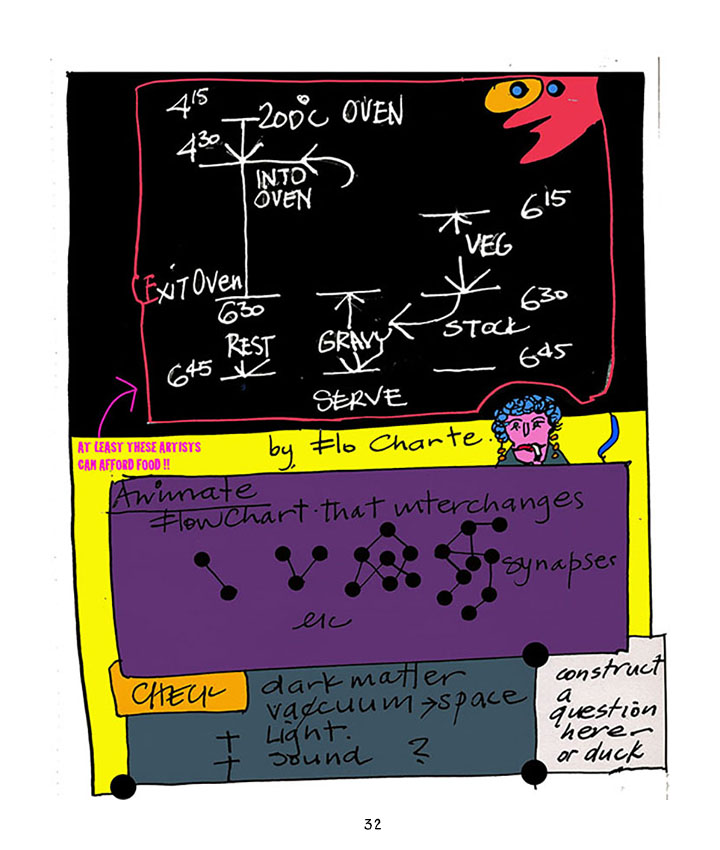 4¹⁵
200°C OVEN
4³⁰
INTO
OVEN
6¹⁵
VEG
EXIT OVEN
6³⁰
6³⁰
REST
GRAVY
STOCK
6⁴⁵
6⁴⁵
SERVE
AT LEAST THESE ARTISTS
CAN AFFORD FOOD !!
by Flo Charte.
Animate
Flowchart. that interchanges
synapses
etc
CHECK
dark matter
vaccuum → space
+ Light.
+ sound ?
construct
a
question
here —
or duck
32